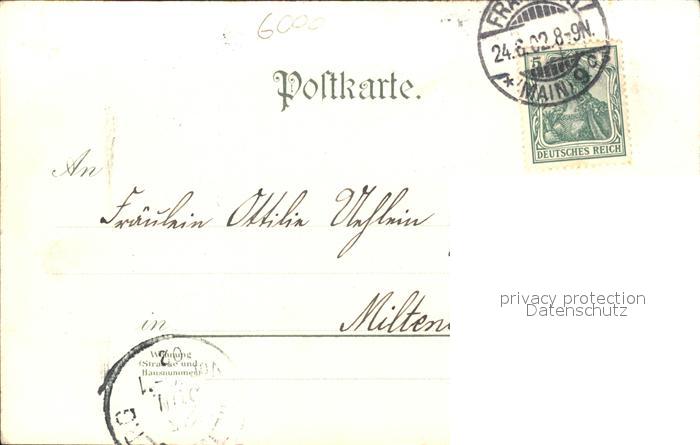 6000
FRA
24.6.02.8-9N.
* (MAIN) 9
5
DEUTSCHES REICH
Postkarte.
An
Fräulein Ottilie Uehlein
in Milten
Wohnung
(Straße und
Hausnummer)
privacy protection
Datenschutz